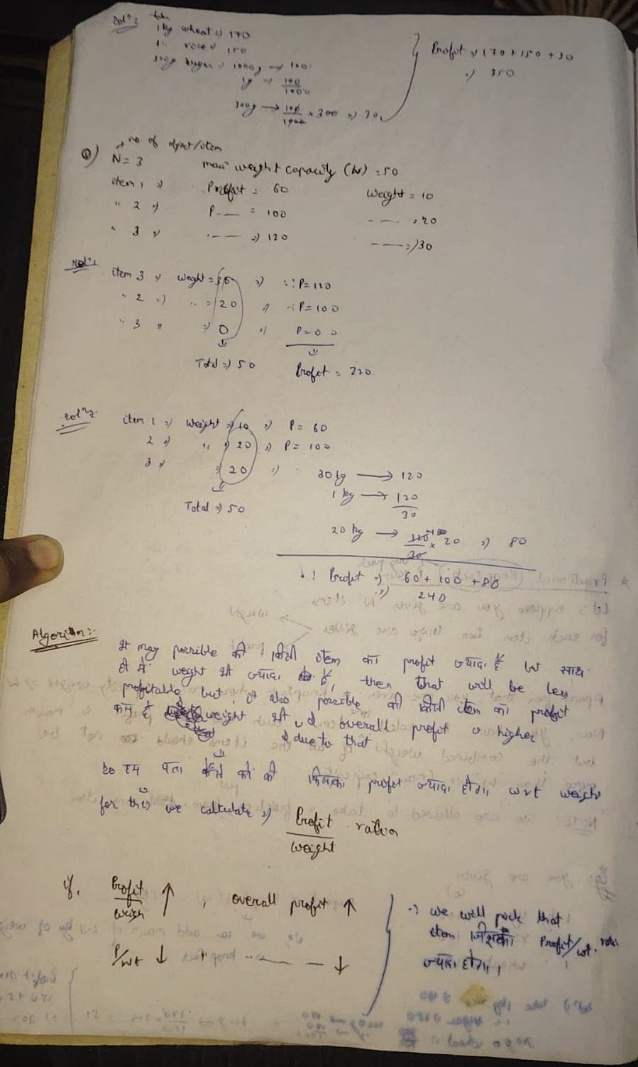 Solⁿ:
1 kg wheat => 170
300g sugar => 1000g → 100
1g → 100/1000
300g → 100/1000 × 300 => 30
Profit => 170 + 150 + 30
=> 350
Q) no of object/item
N = 3 max weight capacity (W) = 50
item 1 => Profit = 60 Weight = 10
" 2 => P — = 100 — = 20
" 3 => — => 120 — => 30
Solⁿ1
item 3 => weight = 30 => ∴ P = 120
" 2 => " = 20 => ∴ P = 100
" 3 => 0 => P = 0
Total => 50 Profit = 220
Solⁿ2
item 1 => Weight => 10 => P = 60
2 => " => 20 => P = 100
3 => => 20 => 30kg → 120
1 kg → 120/30
Total => 50
20 kg → 120/30 × 20 => 80
∴ Profit => 60 + 100 + 80
=> 240
Algorithm:-
may possible की किसी item का profit ज्यादा है but साथ
ही में weight भी ज्यादा है, then that will be less
profitable but it also possible की किसी item का profit
कम है weight भी overall profit is higher
due to that
so हम पता की किसका profit ज्यादा होगा wrt weight
for this we calculate => Profit/weight ratio
if, Profit/weigh ↑, overall profit ↑
P/wt ↓ ↓
∴ we will pick that
item जिसका Profit/wt. ratio
ज्यादा होगा।